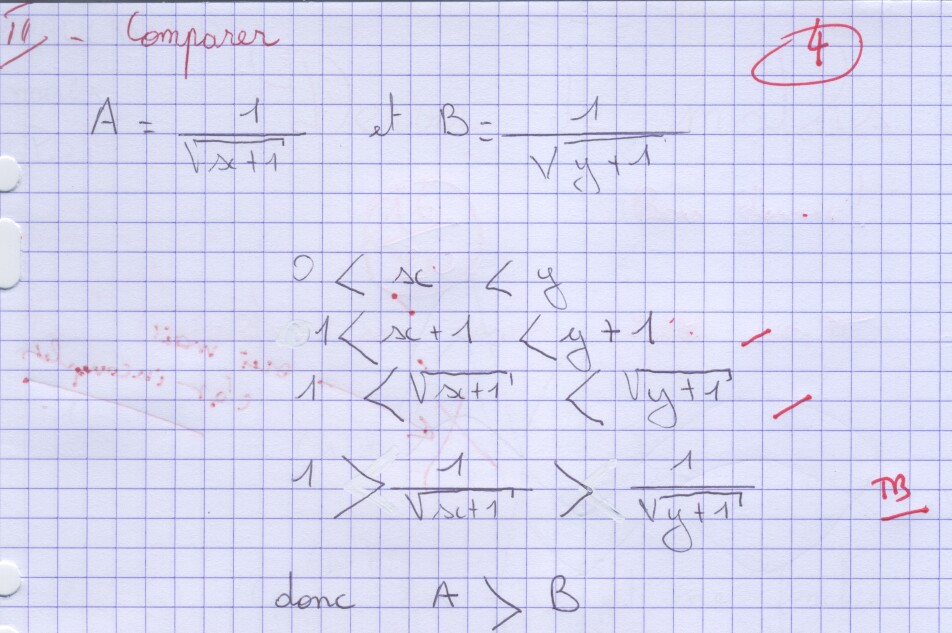 III - Comparer
4
A = 1/√(x+1) et B = 1/√(y+1)
0 < x < y
1 < x+1 < y+1
1 < √(x+1) < √(y+1)
1 > 1/√(x+1) > 1/√(y+1)
TB
donc A > B